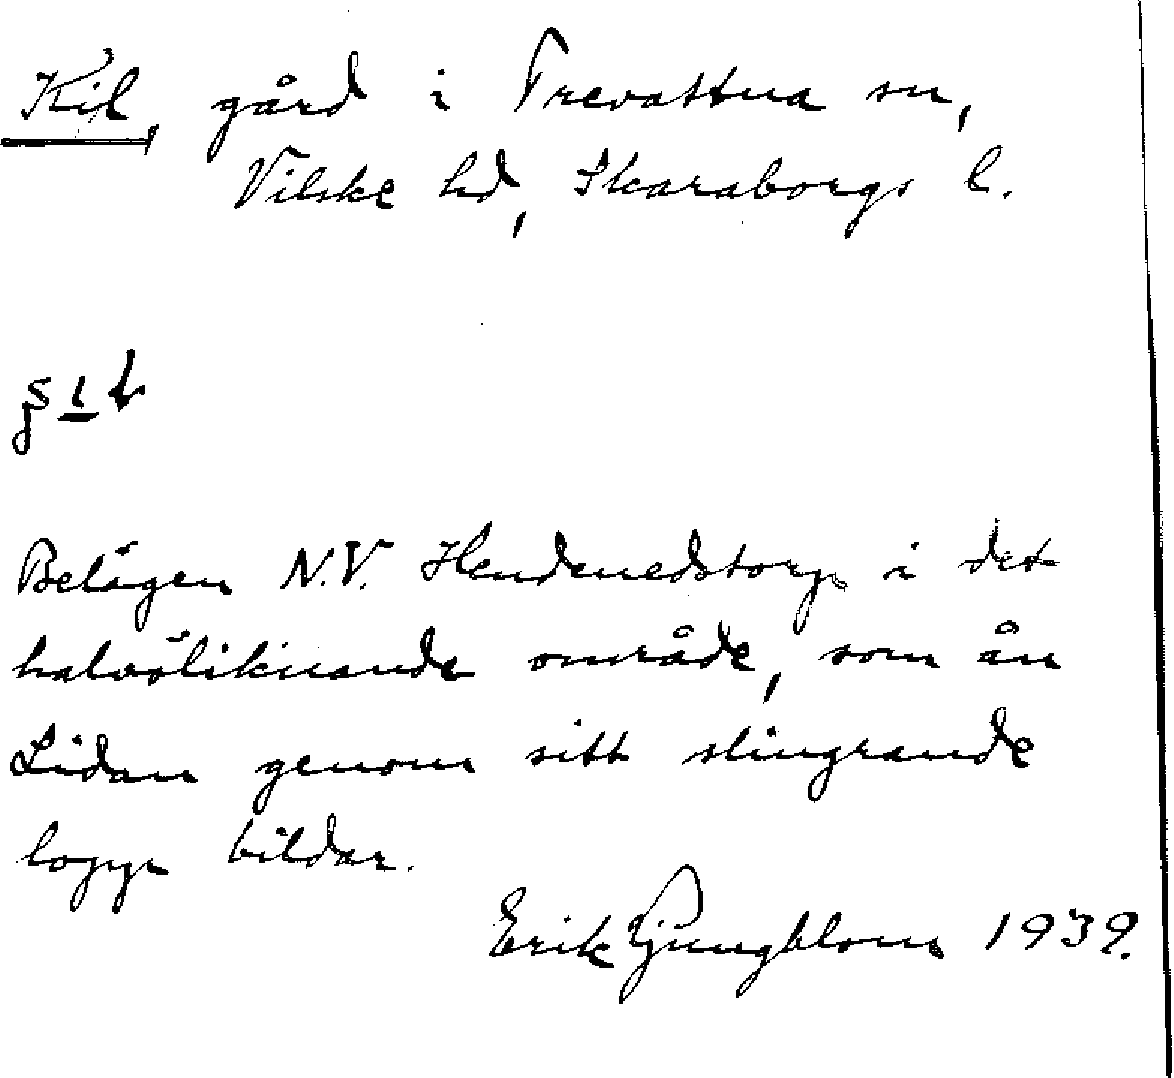 Kil, gård i Trevattna sn,
Vilske hd, Skaraborgs l.
Belägen N.V. Hendenedstorp i det
halvöliknande område, som ån
Lidan genom sitt slingrande
lopp bildar.
Erik Ljungblom 1939.